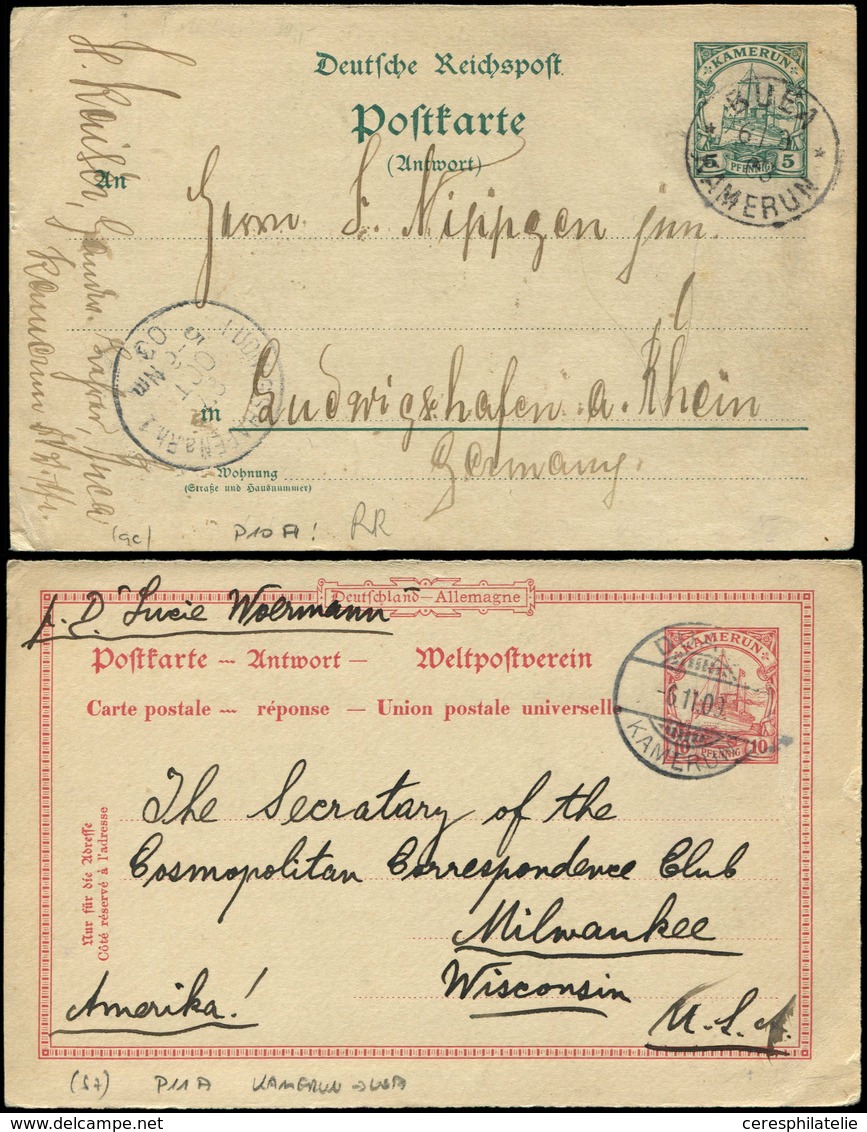 Deutsche Reichspost
Postkarte
(Antwort)
KAMERUN
5 PFENNIG 5
BUEA
KAMERUN
An
Herrn. S. Nippgen jun.
in Ludwigshafen a. Rhein
Germany.
Wohnung
(Straße und Hausnummer)
(gc) P10A! RR
Deutschland—Allemagne
p. D. "Lucie Woermann"
Postkarte — Antwort — Weltpostverein
Carte postale — réponse — Union postale universelle
KAMERUN
10 PFENNIG 10
-6.11.09.
KAMERUN
Nur für die Adresse
Côté réservé à l'adresse
The Secratary of the
Cosmopolitan Correspondence Club
Milwaukee
Wisconsin
Amerika!
U.S.A.
(57) P11A KAMERUN
ceresphilatelie